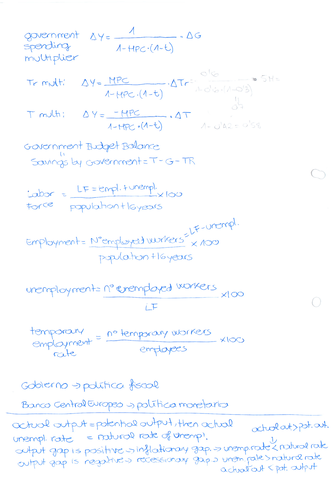 government spending multiplier ΔY = 1 / 1-MPC·(1-t) · ΔG
Tr multi: ΔY = MPC / 1-MPC·(1-t) · ΔTr
T multi: ΔY = -MPC / 1-MPC·(1-t) · ΔT
Government Budget Balance
"
Savings by Government = T-G-TR
Labor Force = LF = empl. + unempl. / population +16 years × 100
Employment = Nº employed workers = LF - unempl. / population +16 years × 100
unemployment = nº unemployed workers / LF × 100
temporary employment rate = nº temporary workers / employees × 100
Gobierno → política fiscal
Banco Central Europeo → política monetaria
actual output = potential output, then actual
unempl. rate = natural rate of unempl. actual out > pot. out.
output gap is positive → inflationary gap → unemp rate < natural rate
output gap is negative → recessionary gap → unem rate > natural rate
actual out < pot. output